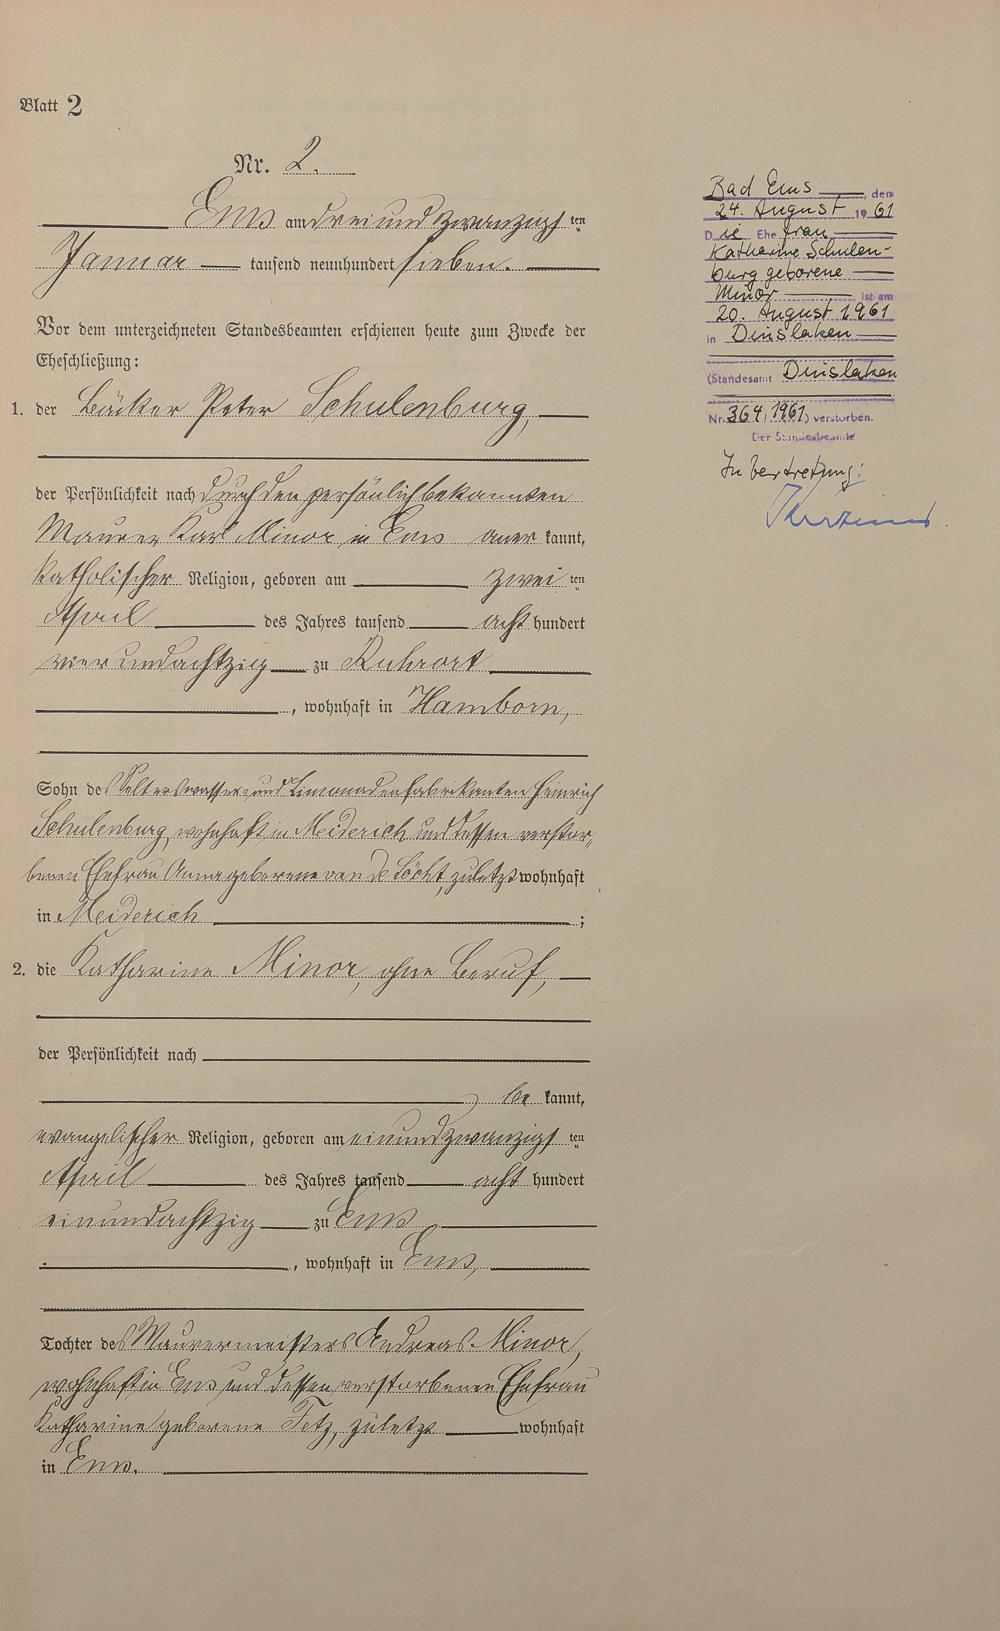 Blatt 2
Nr. 2.
Ems am dreiundzwanzigsten
Januar tausend neunhundert sieben.
Vor dem unterzeichneten Standesbeamten erschienen heute zum Zwecke der
Eheschließung:
1. der Bäcker Peter Schulenburg,
der Persönlichkeit nach durch den persönlich bekannten
Maurer Karl Minor in Ems anerkannt,
katholischer Religion, geboren am zweiten
April des Jahres tausend acht hundert
vierundachtzig zu Ruhrort
, wohnhaft in Hamborn,
Sohn des Selterswasser- und Limonadenfabrikanten Heinrich
Schulenburg, wohnhaft in Meiderich und dessen verstor-
benen Ehefrau Anna geborene van de Löcht, zuletzt wohnhaft
in Meiderich ;
2. die Katharine Minor, ohne Beruf,
der Persönlichkeit nach
, bekannt,
evangelischer Religion, geboren am einundzwanzigsten
April des Jahres tausend acht hundert
einundachtzig zu Ems
, wohnhaft in Ems,
Tochter des Maurermeisters Andreas Minor,
wohnhaft in Ems und dessen verstorbenen Ehefrau
Katharine geborene Fetz, zuletzt wohnhaft
in Ems.
Bad Ems, den
24. August 1961
Die Ehefrau
Katharine Schulen-
burg geborene
Minor ist am
20. August 1961
in Dinslaken
(Standesamt Dinslaken
Nr. 364/1961) verstorben.
Der Standesbeamte
In Vertretung: